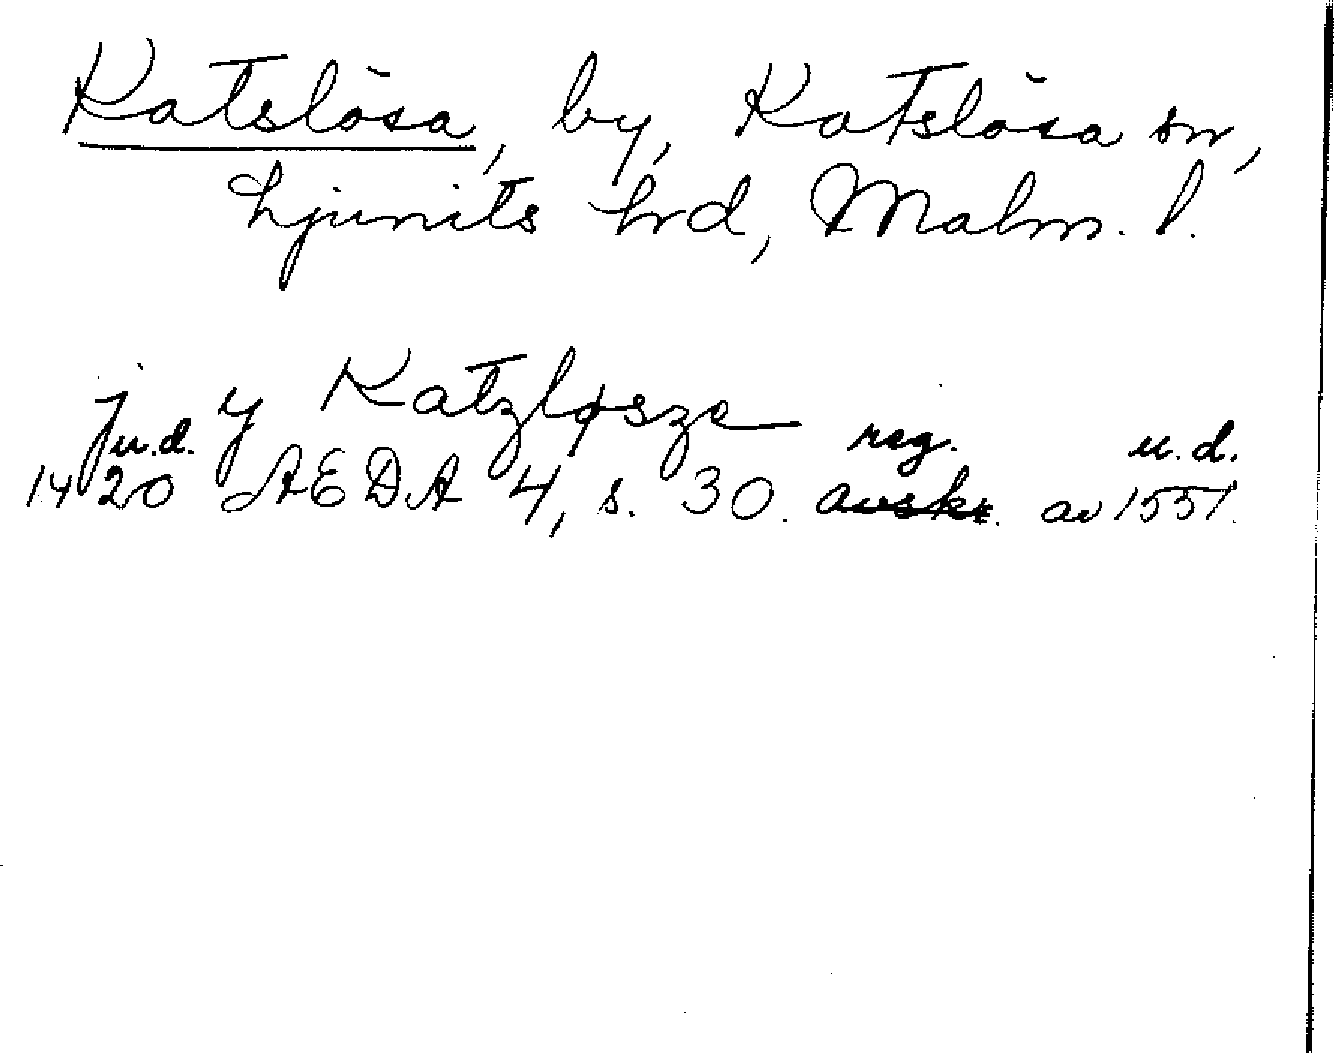 Katslösa, by, Katslösa sn,
Ljunits hrd, Malm. l.
j y Katzløsze
u.d. reg. u.d.
1420 ÆEDA 4, s. 30. avskr. av 1551.